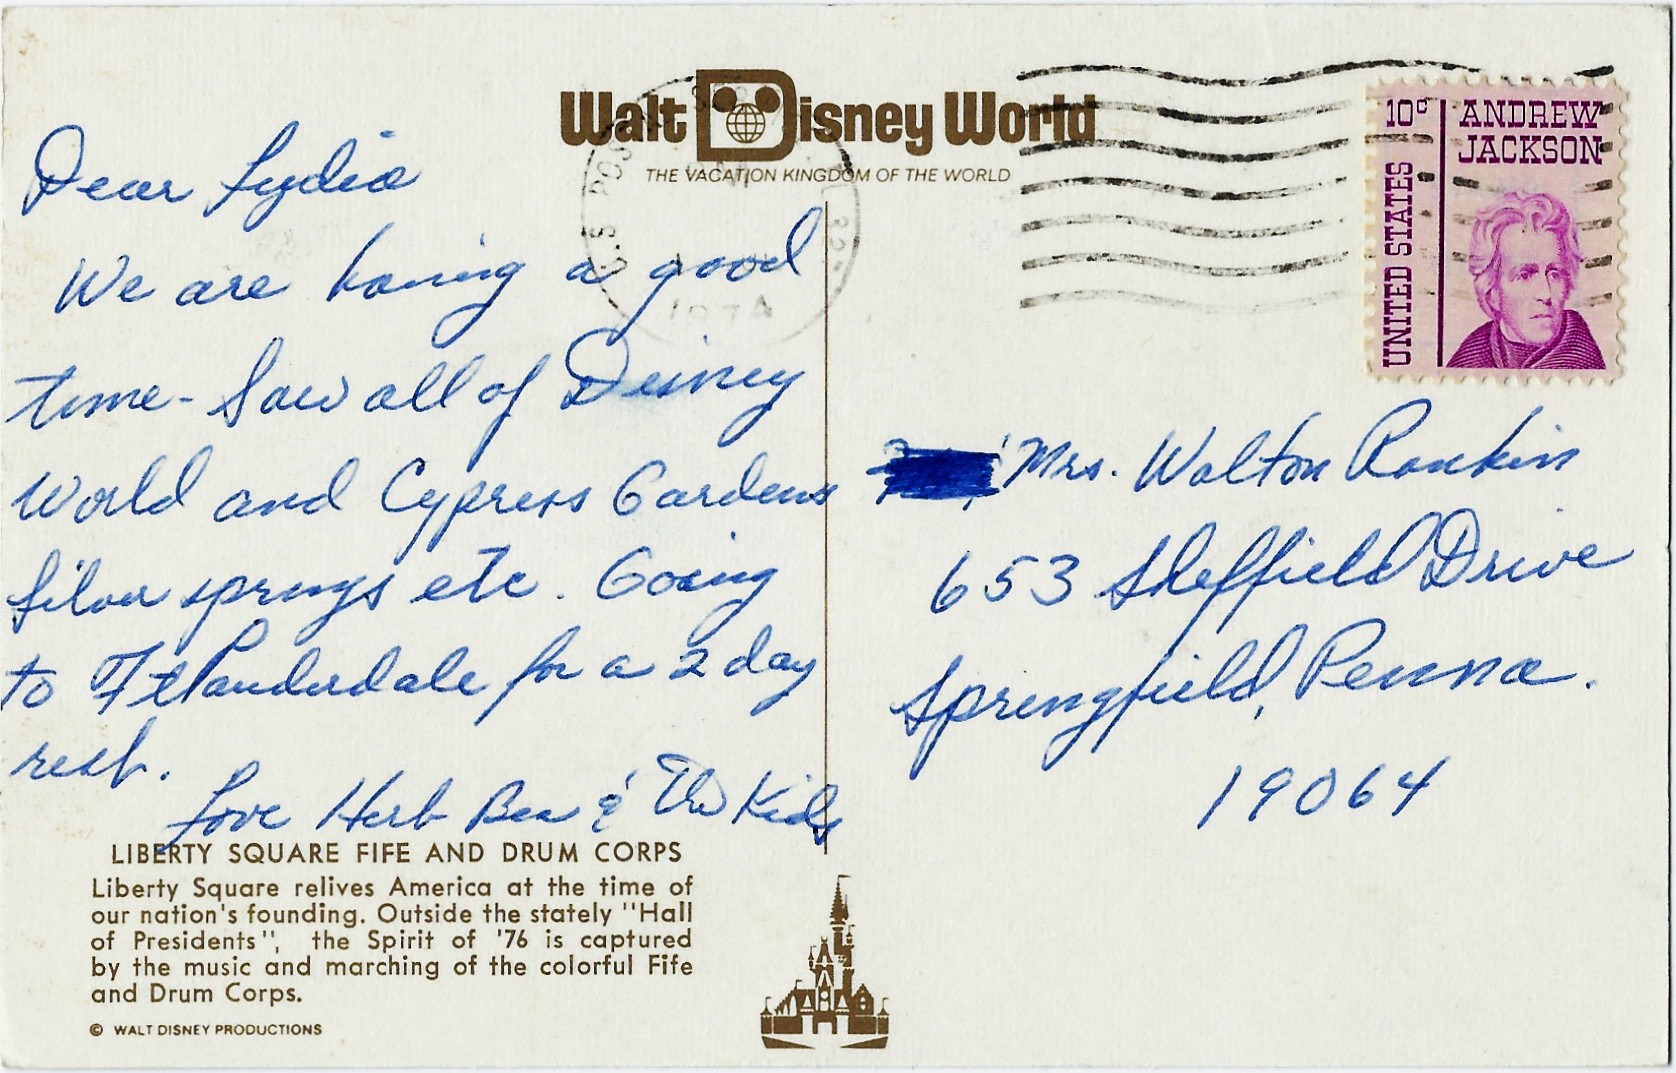 Walt Disney World
THE VACATION KINGDOM OF THE WORLD
Dear Lydia
We are having a good
time - Saw all of Disney
World and Cypress Gardens
Silver springs etc. Going
to Ft Lauderdale for a 2 day
rest.
Love Herb Bea & The Kids
LIBERTY SQUARE FIFE AND DRUM CORPS
Liberty Square relives America at the time of
our nation's founding. Outside the stately "Hall
of Presidents", the Spirit of '76 is captured
by the music and marching of the colorful Fife
and Drum Corps.
© WALT DISNEY PRODUCTIONS
U.S. POS
10c ANDREW
JACKSON
UNITED STATES
Mrs. Walton Rankin
653 Sheffield Drive
Springfield, Penna.
19064